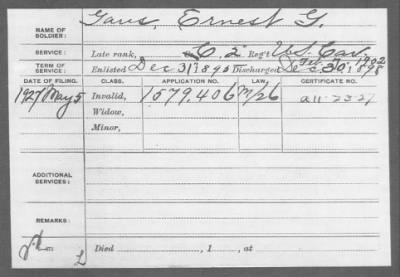 Gaus, Ernest G.
NAME OF SOLDIER:
SERVICE: Late rank, C, 2 Reg't U.S. Cav.
TERM OF SERVICE: Enlisted Dec 31, 1895 Discharged Dec. 30, 1898
Feb. 1902
DATE OF FILING. CLASS. APPLICATION NO. LAW. CERTIFICATE NO.
1927 May 5 Invalid, 1579.406 M/26
Widow,
Minor,
ADDITIONAL SERVICES:
REMARKS:
Died , 1 , at